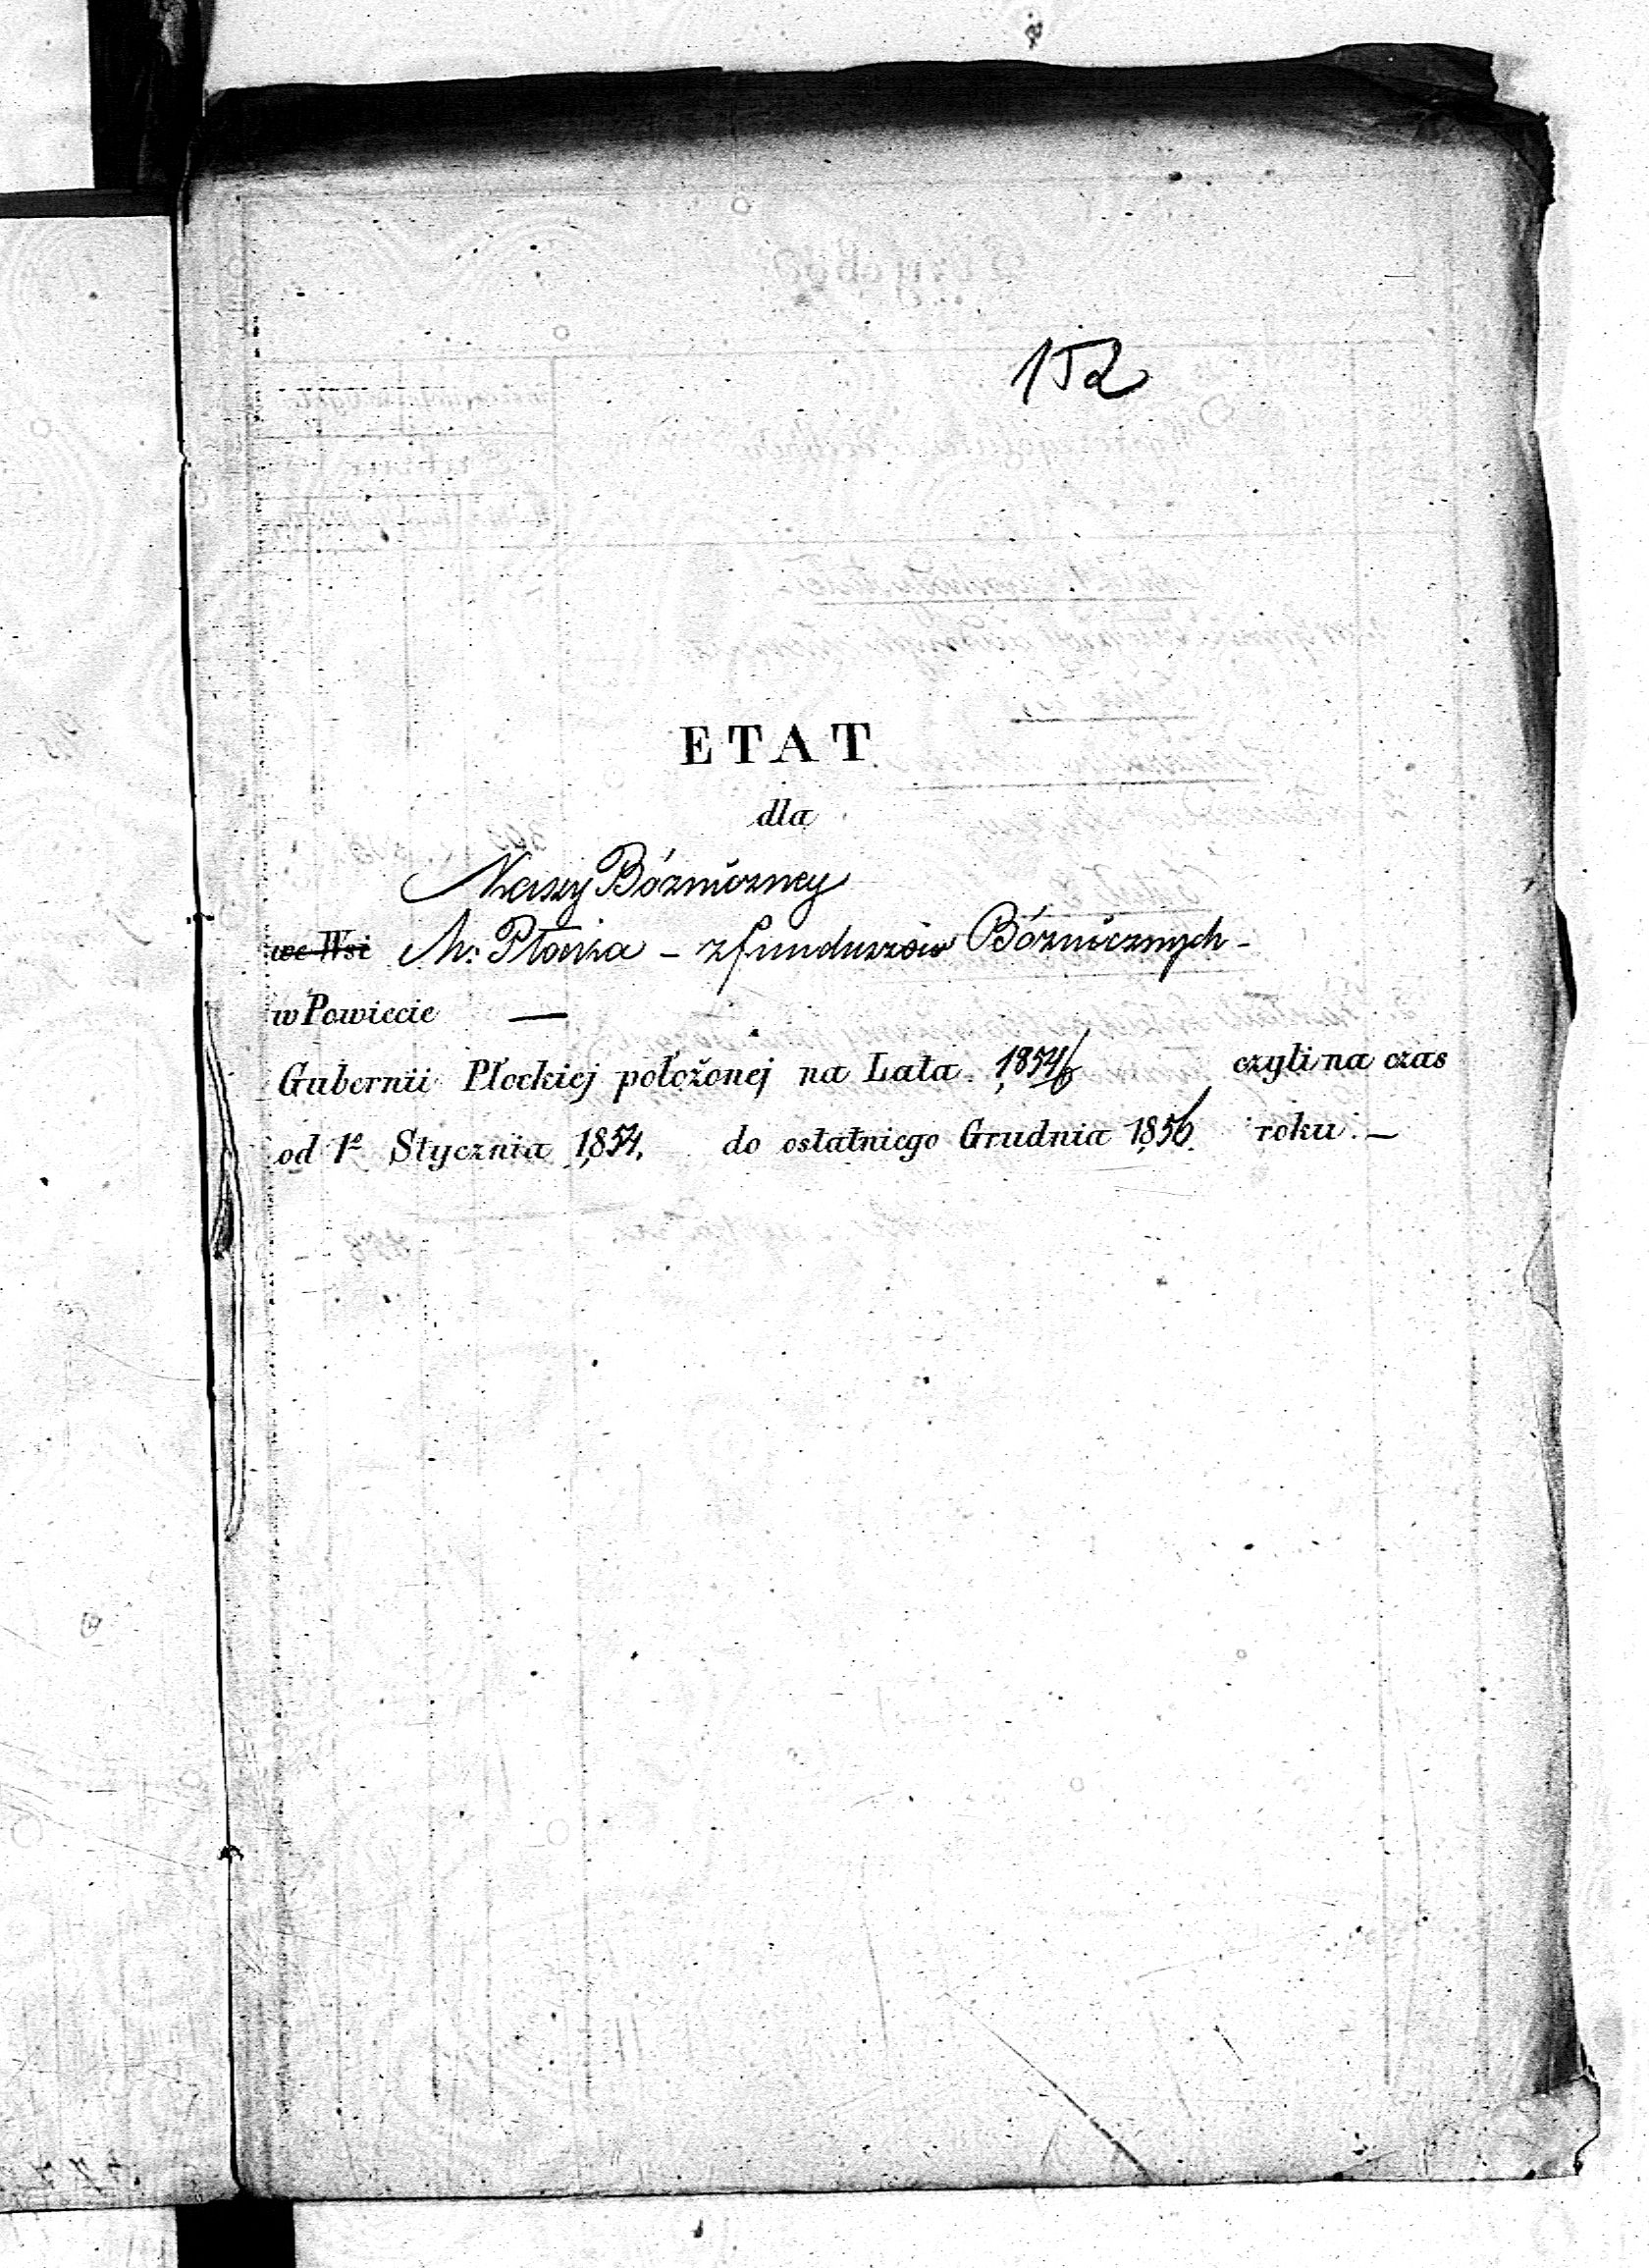 152
ETAT
dla
Kassy Bóżniczney
we Wsi M: Płocka – z funduszów Bóżnicznych –
w Powiecie —
Gubernii Płockiej położonej na Lata 1854/6 czyli na czas
od 1º Stycznia 1854. do ostatniego Grudnia 1856 roku. –